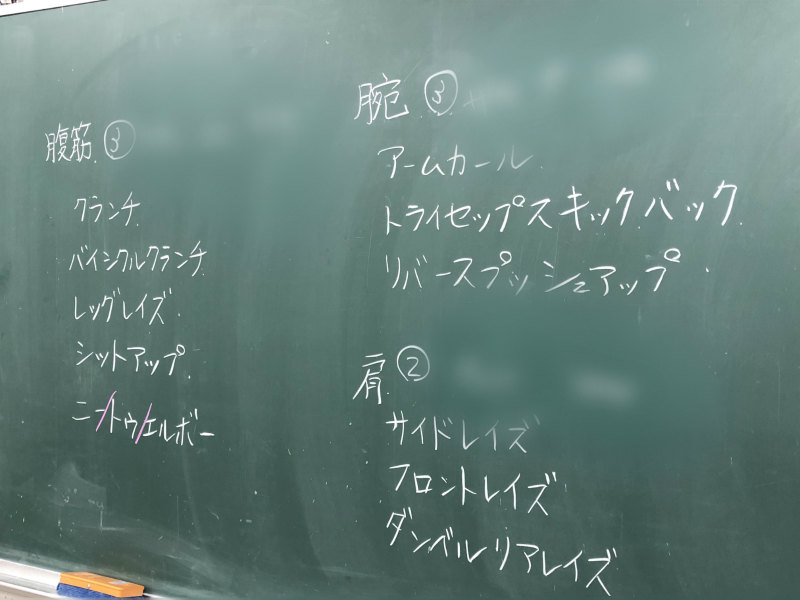 腹筋 ③
クランチ
バイシクルクランチ
レッグレイズ
シットアップ
ニートゥエルボー
腕 ③
アームカール
トライセップスキックバック
リバースプッシュアップ
肩 ②
サイドレイズ
フロントレイズ
ダンベルリアレイズ